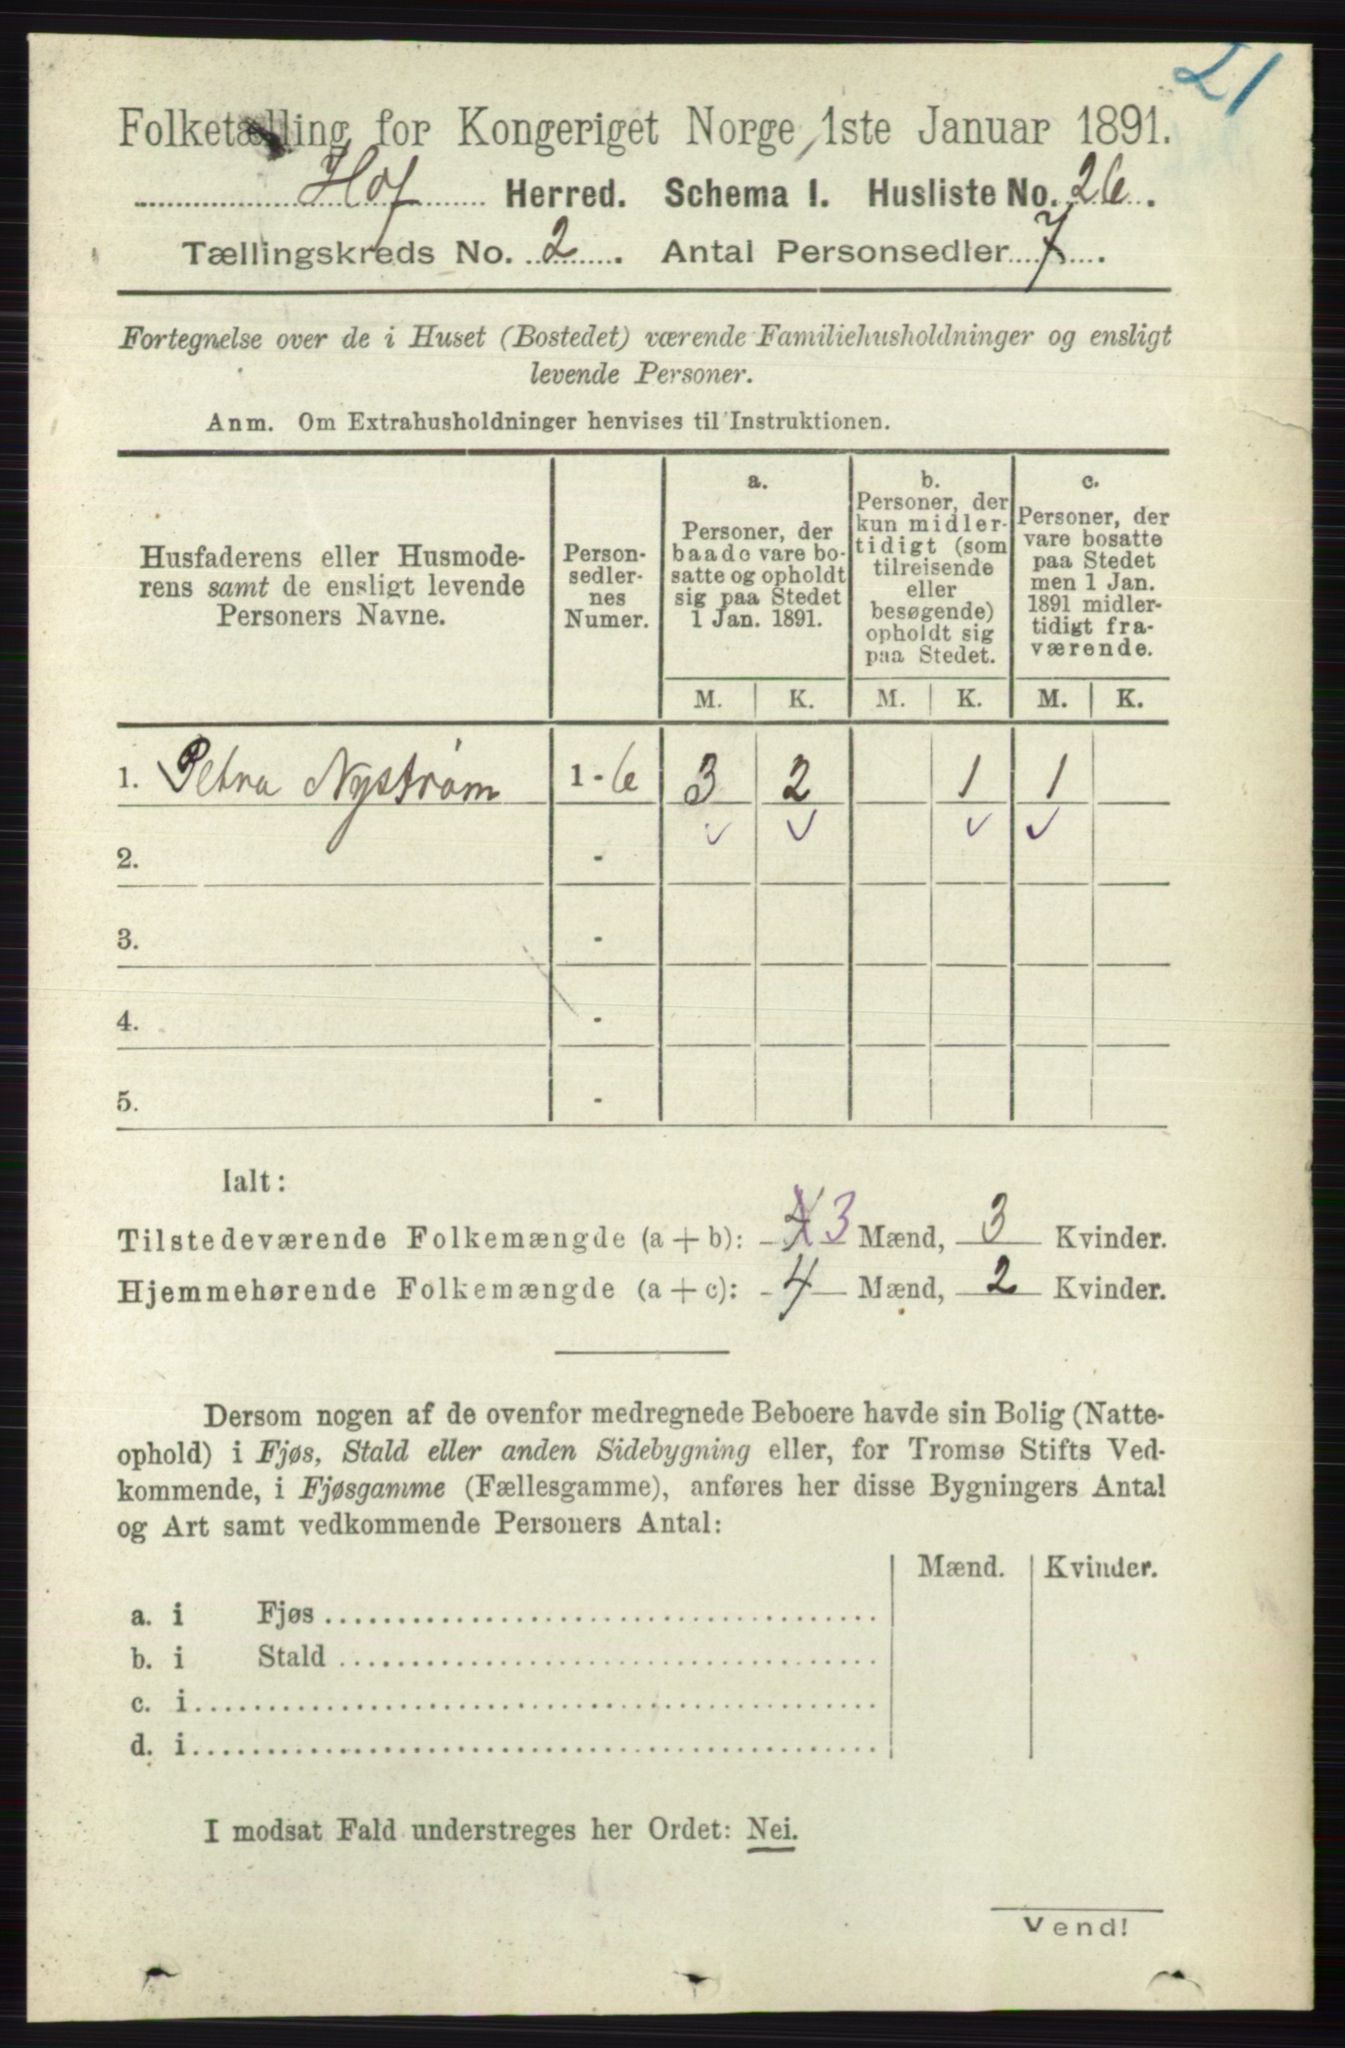 21
Folketælling for Kongeriget Norge 1ste Januar 1891.
Hof Herred. Schema I. Husliste No. 26.
Tællingskreds No. 2. Antal Personsedler 7.
Fortegnelse over de i Huset (Bostedet) værende Familiehusholdninger og ensligt
levende Personer.
Anm. Om Extrahusholdninger henvises til Instruktionen.
Husfaderens eller Husmode-
rens samt de ensligt levende
Personers Navne.
Person-
sedler-
nes
Numer.
a.
Personer, der
baade vare bo-
satte og opholdt
sig paa Stedet
1 Jan. 1891.
b.
Personer, der
kun midler-
tidigt (som
tilreisende
eller
besøgende)
opholdt sig
paa Stedet.
c.
Personer, der
vare bosatte
paa Stedet
men 1 Jan.
1891 midler-
tidigt fra-
værende.
M. K. M. K. M. K.
1. Petra Nystrøm 1 - 6 3 2 1 1
✓ ✓ ✓ ✓
2. -
3. -
4. -
5. -
Ialt:
Tilstedeværende Folkemængde (a + b): 4 3 Mænd, 3 Kvinder.
Hjemmehørende Folkemængde (a + c): 4 Mænd, 2 Kvinder.
Dersom nogen af de ovenfor medregnede Beboere havde sin Bolig (Natte-
ophold) i Fjøs, Stald eller anden Sidebygning eller, for Tromsø Stifts Ved-
kommende, i Fjøsgamme (Fællesgamme), anføres her disse Bygningers Antal
og Art samt vedkommende Personers Antal:
Mænd. Kvinder.
a. i Fjøs
b. i Stald
c. i
d. i
I modsat Fald understreges her Ordet: Nei.
Vend!